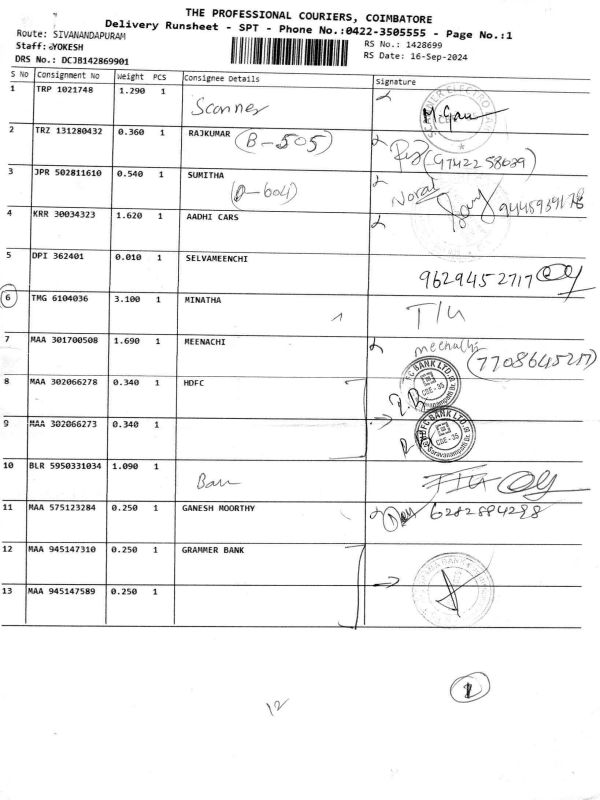 THE PROFESSIONAL COURIERS, COIMBATORE
Delivery Runsheet - SPT - Phone No.:0422-3505555 - Page No.:1
Route: SIVANANDAPURAM
RS No.: 1428699
Staff: YOKESH
RS Date: 16-Sep-2024
DRS No.: DCJB142869901
S No Consignment No Weight PCS Consignee Details Signature
1 TRP 1021748 1.290 1 Scanner
2 TRZ 131280432 0.360 1 RAJKUMAR (B-505) (9742258039)
3 JPR 502811610 0.540 1 SUMITHA (D-604) 9445939178
4 KRR 30034323 1.620 1 AADHI CARS
5 DPI 362401 0.010 1 SELVAMEENCHI 9629452717
6 TMG 6104036 3.100 1 MINATHA T/U
7 MAA 301700508 1.690 1 MEENACHI meenachi (7708645217)
8 MAA 302066278 0.340 1 HDFC
9 MAA 302066273 0.340 1
10 BLR 5950331034 1.090 1
11 MAA 575123284 0.250 1 GANESH MOORTHY 6282894298
12 MAA 945147310 0.250 1 GRAMMER BANK
13 MAA 945147589 0.250 1
12
1